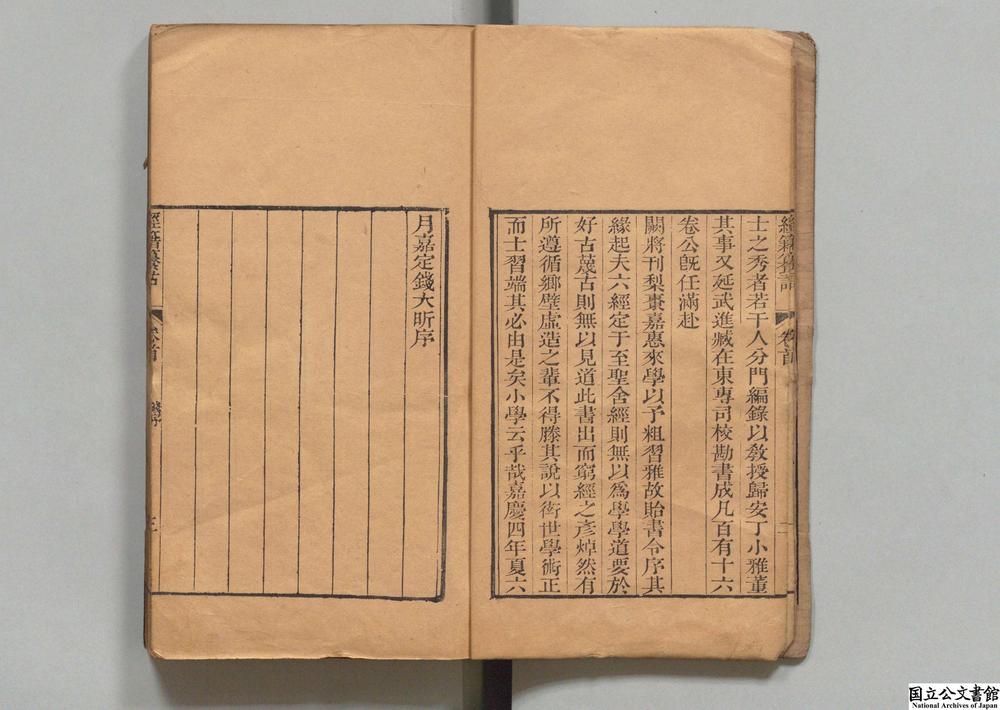 經籍籑詁 卷首
士之秀者若干人分門編錄以敎授歸安丁小雅董
其事又延武進臧在東專司校勘書成凡百有十六
卷公旣任滿赴
闕將刊梨棗嘉惠來學以予粗習雅故貽書令序其
緣起夫六經定于至聖舍經則無以爲學學道要於
好古蔑古則無以見道此書出而窮經之彥焯然有
所遵循鄉壁虛造之輩不得滕其說以衒世學術正
而士習端其必由是矣小學云乎哉嘉慶四年夏六
月嘉定錢大昕序
經籍籑詁 卷首 錢序 三
国立公文書館
National Archives of Japan